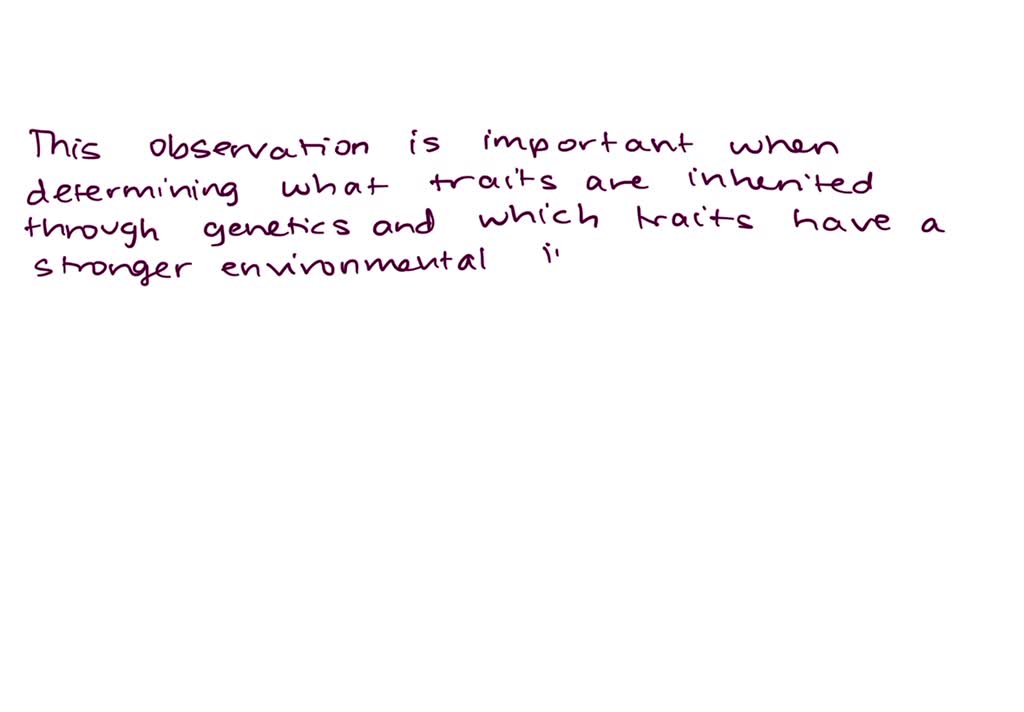 This observation is important when
determining what traits are inherited
through genetics and which traits have a
stronger environmental